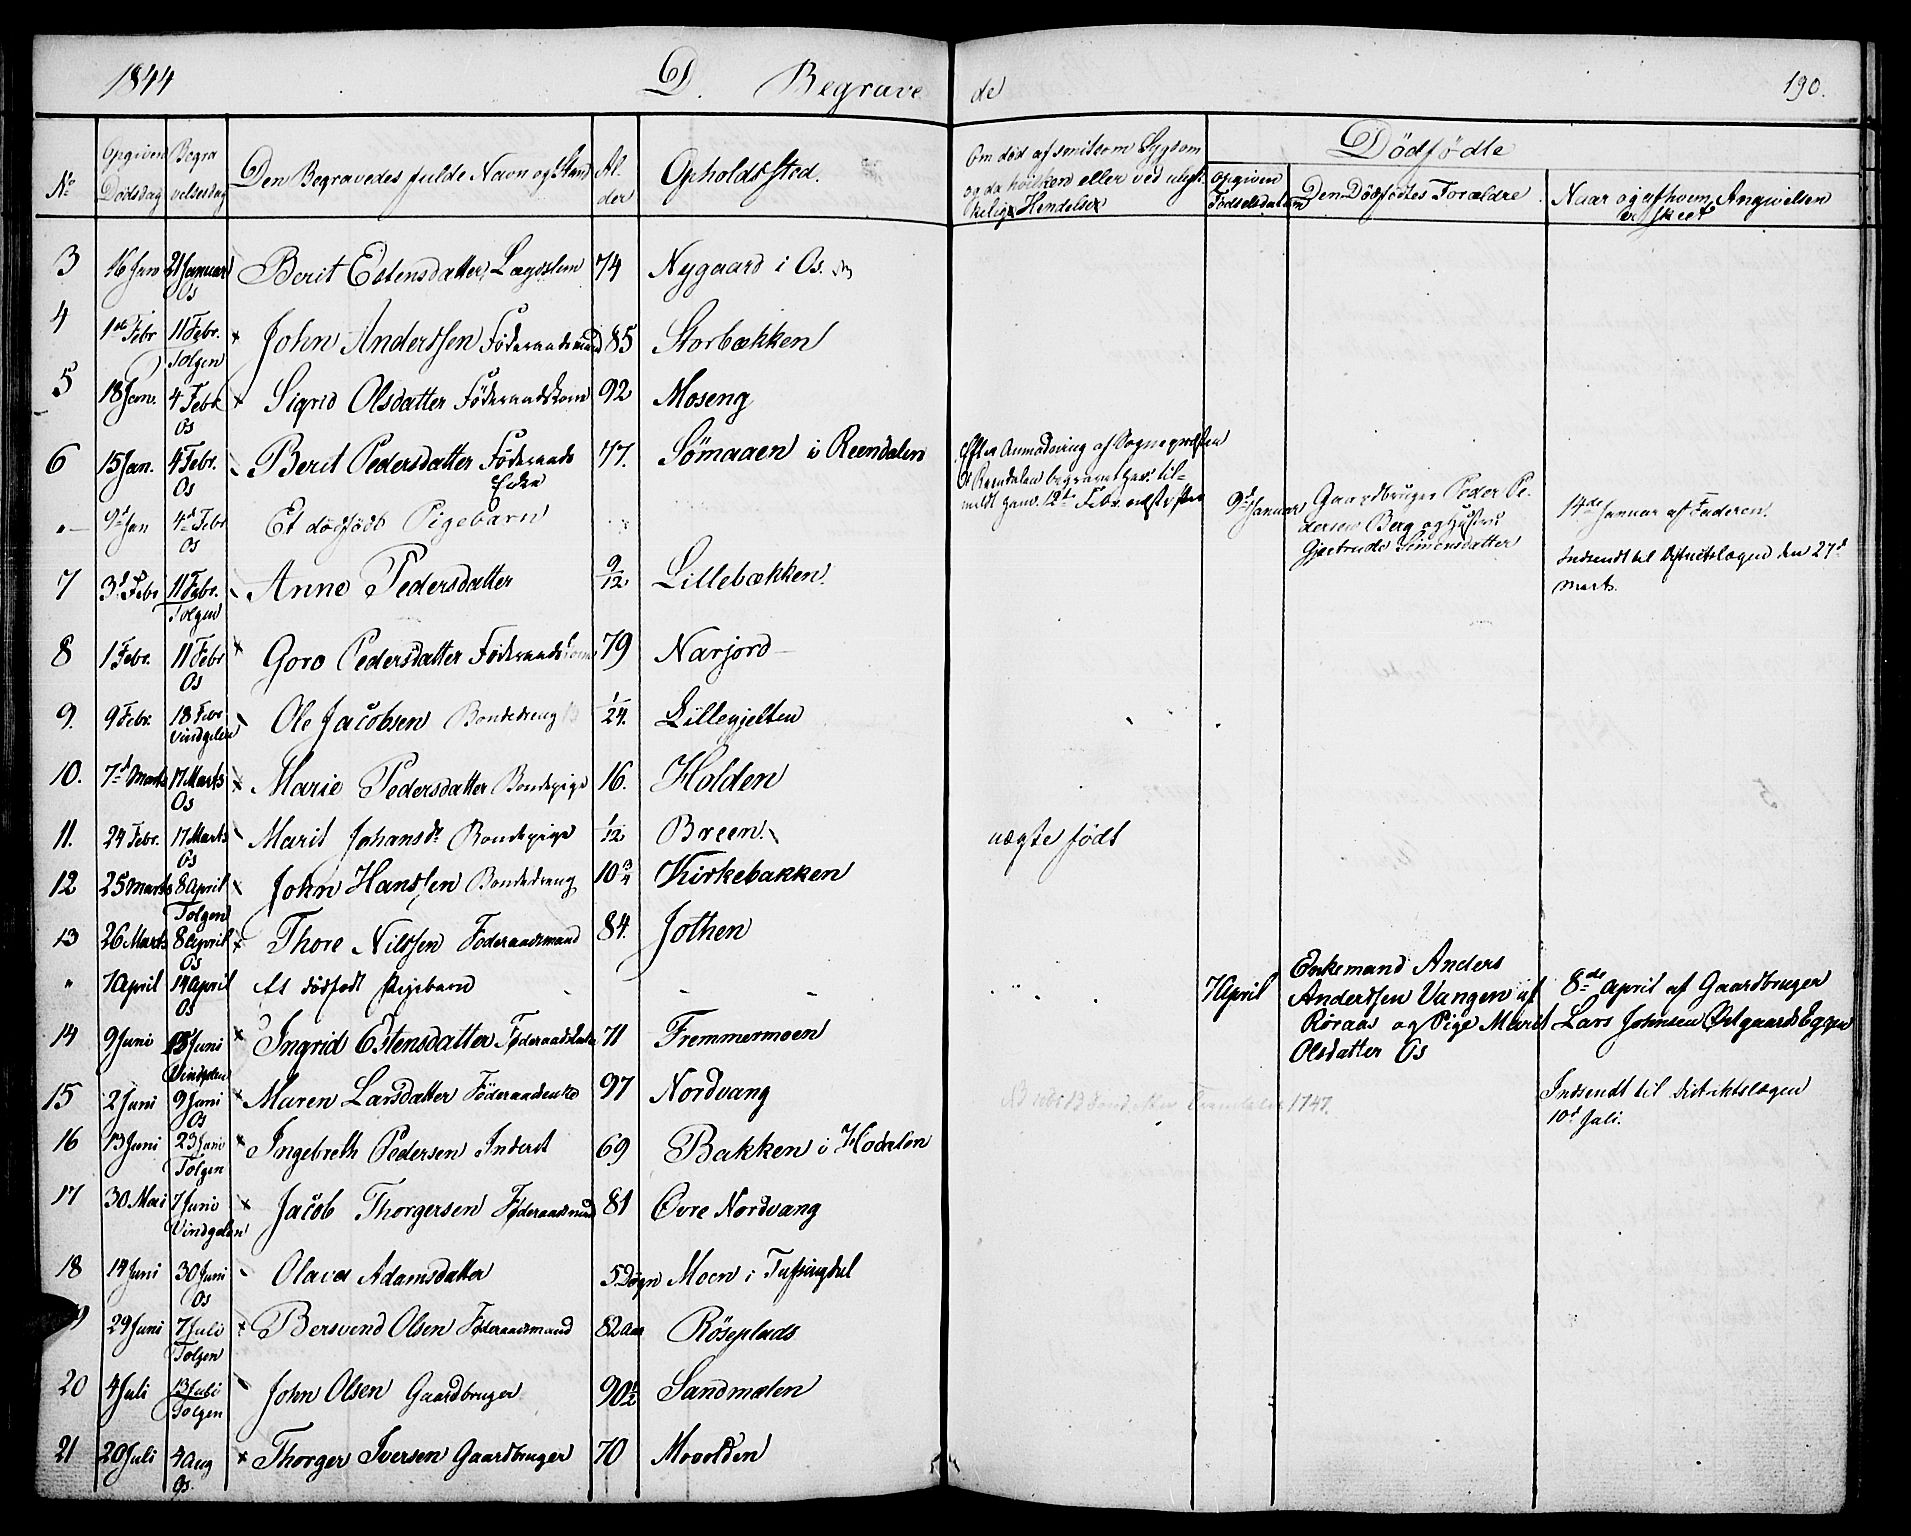 1844 D. Begrave de 190.
No Opgiven Dødsdag Begravelsesdag Den Begravedes fulde Navn og Stand Alder Opholdssted. Om død af smitsom Sygdom og da hvilken eller ved ulykkelig Hendelse Dødfødte
opgiven Fødselsdatum Den Dødfødtes Forældre Naar og af hvem Angivelsen er skeet
3 16 Jan 21 Januar Os Berit Estensdatter, Lægdslem 74 Nygaard i Os.
4 1de Febr 11 Febr. Tolgen John Anderssen Føderaadsmand 85 Storbækken
5 18 Jan. 4 Febr. Os Sigrid Olsdatter Føderaadskone 92 Moseng
6 15 Jan. 4 Febr. Os Berit Pedersdatter Føderaads Enke 77. Sømaaen i Reendalen Efter Anmodning af Sognepræsten
i Reendalen begravet her. tilmeldt ham 12te Febr. næstefter
"— 9d Jan 4de Febr Os Et dødfødt Pigebarn 9d Januar Gaardbruger Peder Pedersen Berg og Hustru Gjertrude Simensdatter 14de Januar af Faderen.
Indsendt til Distriktslægen den 27d Marts.
7 3d Febr 11 Febr. Tolgen Anne Pedersdatter 9/12 Lillebækken.
8 1 Febr. 11 Febr Os Goro Pedersdatter Føderaads 79 Narjord
9. 9 Febr. 18 Febr Vindgelen Ole Jacobsen Bondedreng 1/24. Lillegjelten
10. 7d Marts 17 Marts Os Marie Pedersdatter Bondepige 16. Holden
11. 24 Febr. 17 Marts Os Marit Johansdr Bondepige 1/12 Bræen. uægte født
12 25 Marts 8 April Tolgen John Hanssen Bondedreng 10 3/4 Kirkebakken
13 26 Marts 8 April Os Thore Nilssen Føderaadsmand 84. Jothen
" 7 April 14 April Os Et dødfødt Pigebarn 7 April Enkemand Anders
Anderssen Vangen af
Røraas og Pige Marit
Olsdatter Os
8de April af Gaardbruger
Lars Johnsen Østgaards Eggen
Indsendt til Distriktslægen
10d Juli.
14 9 Juni Juni Vindgelen Ingrid Estensdatter 71 Fremmermoen
15 2 Juni 9 Juni Os Maren Larsdatter Føderaadenke 97 Nordvang 1747.
16 13 Juni 23 Juni Tolgen Ingebreth Pedersen Inderst 69 Bakken i Hodalen
17 30 Mai 7 Juni Vindgelen Jacob Thorgersen Føderaadsmand 81 Øvre Nordvang
18 14 Juni 30 Juni Os Olava Adamsdatter 5 Døgn Moen i Tufsingdal
19 29 Juni 7 Juli Tolgen Bersvend Olsen Føderaadsmand 82 Aar Røseplads
20 4 Juli 13 Juli Tolgen John Olsen Gaardbruger 90 1/2 Sandmælen
21 20 Juli 4 Aug Os. Thorger Iversen Gaardbruger 70 Movolden